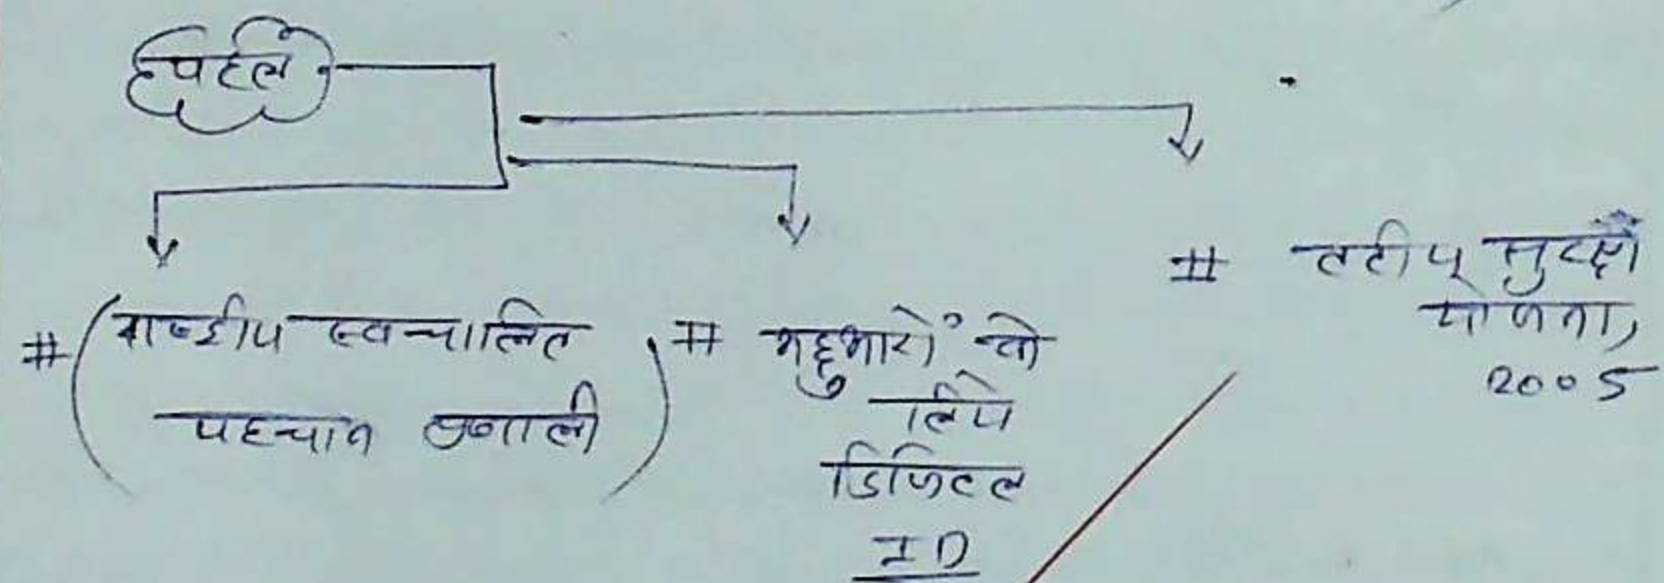 पहलें
# (राष्ट्रीय स्वचालित
पहचान प्रणाली)
# मछुआरों को
लिये
डिजिटल
ID
# तटीय सुरक्षा
योजना,
2005